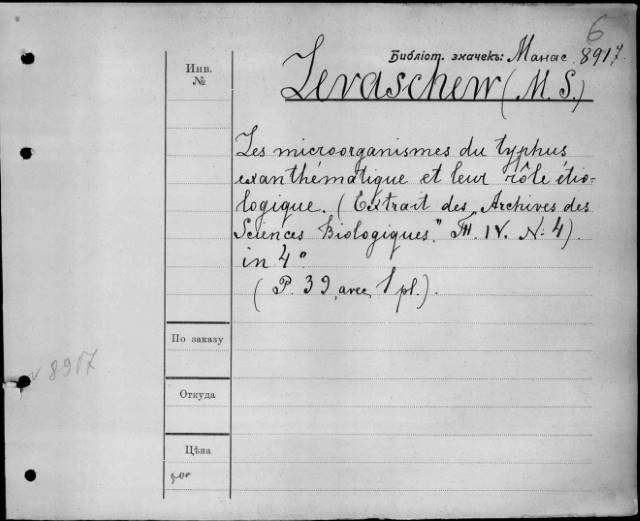 6
Библіот. значекъ: Манас 8917.
Инв.
№
Levaschew (M. S.)
Les microorganismes du typhus
exanthématique et leur rôle étio-
logique. (Extrait des „Archives des
Sciences Biologiques." T. IV. N: 4).
in 4°
(P. 39 avec 1 pl.).
По заказу
v 8917
Откуда
Цѣна